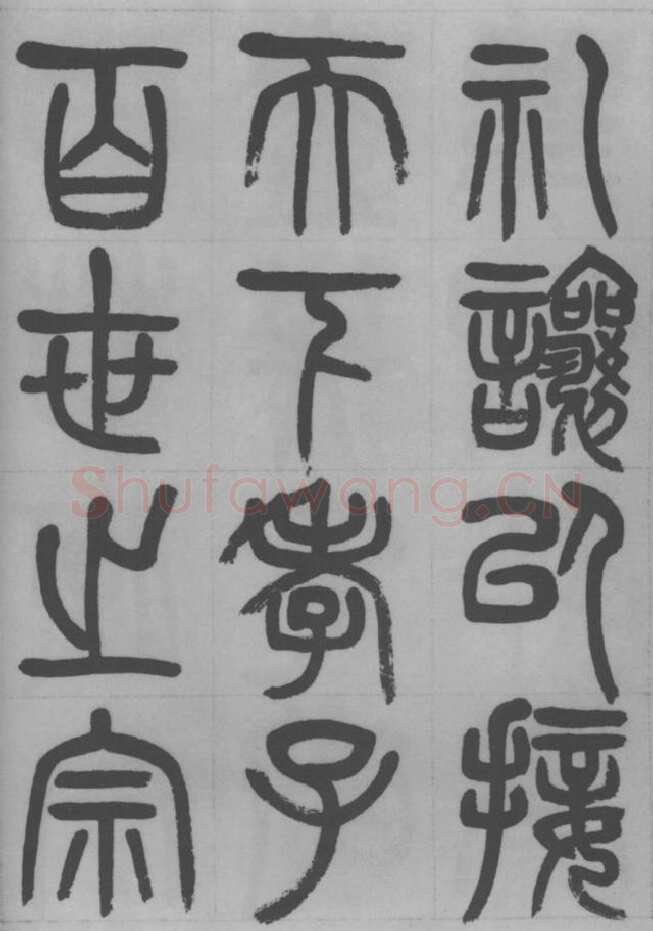 礼讓以接
而下孝子
百世之宗
Shufawang.CN